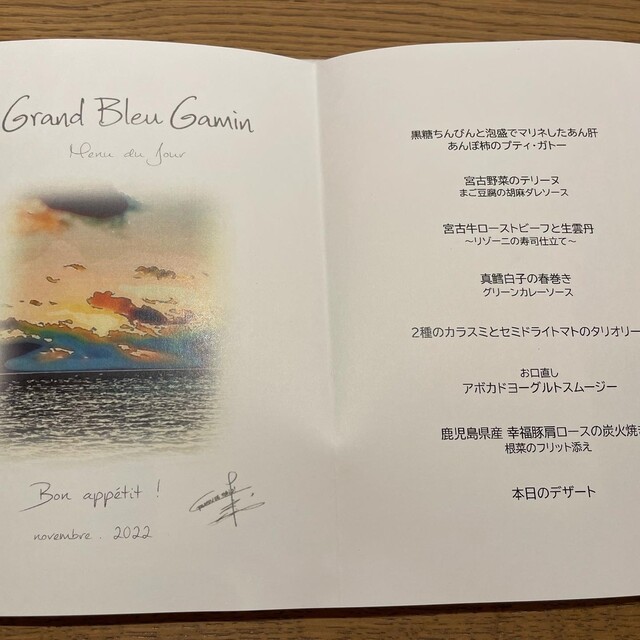 Grand Bleu Gamin
Menu du Jour
Bon appétit !
novembre. 2022
黒糖ちんびんと泡盛でマリネしたあん肝
あんぽ柿のプティ・ガトー
宮古野菜のテリーヌ
まご豆腐の胡麻ダレソース
宮古牛ローストビーフと生雲丹
～リゾーニの寿司仕立て～
真鱈白子の春巻き
グリーンカレーソース
2種のカラスミとセミドライトマトのタリオリー
お口直し
アボカドヨーグルトスムージー
鹿児島県産 幸福豚肩ロースの炭火焼
根菜のフリット添え
本日のデザート